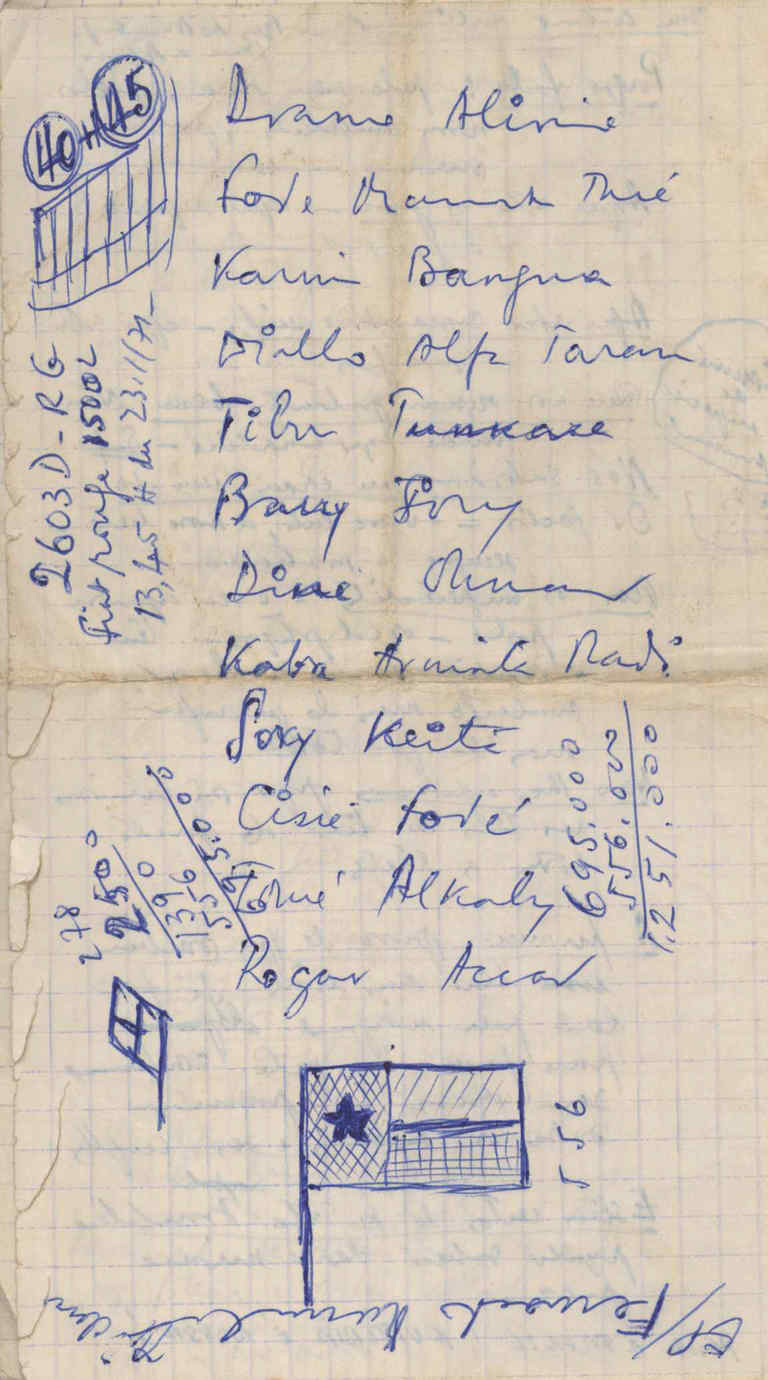 Drame Alioune
Fode Mamah Thié
Karim Bangura
Diallo Alfa Taran
Tibu Tunkaze
Barry Fory
Diné Oumar
Kaba Madi
Sory Keita
Cissé Fodé
Touré Alkaly
Roger Accar
40 + 45
2603D-RG
Fiat rouge 1500L
13,45 H du 23/1/71_
278
2500
0
1390
556
695.000
695.000
556.000
1.251.000
556